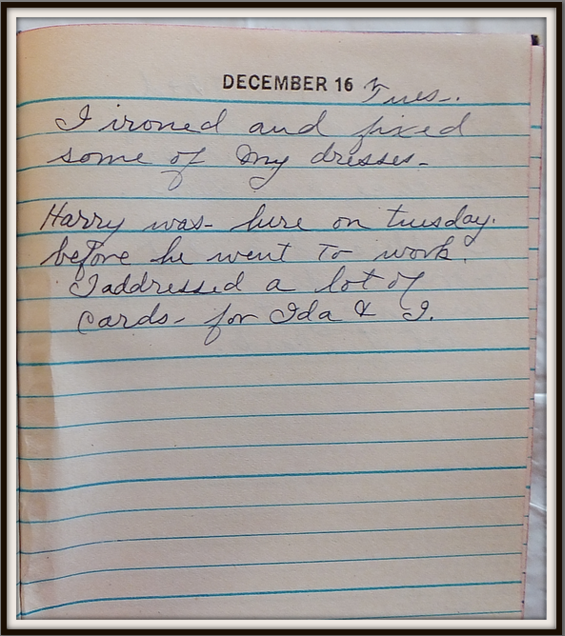 DECEMBER 16 Tues-.
I ironed and fixed
some of my dresses-
Harry was- here on tuesday.
before he went to work.
I addressed a lot of
Cards- for Ida & I.